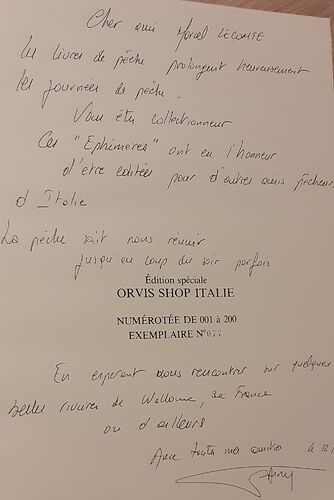 Cher ami Marcel LECOMTE
Les livres de pêche prolongent heureusement
les journées de pêche.
Vous êtes collectionneur
Ces "Ephémères" ont eu l'honneur
d'être éditées pour d'autres amis pêcheurs
d'Italie
La pêche sait nous réunir
jusqu'au coup du soir parfois
Édition spéciale
ORVIS SHOP ITALIE
NUMÉROTÉE DE 001 à 200
EXEMPLAIRE N°077
En espérant vous rencontrer sur quelques
belles rivières de Wallonie, de France
ou d'ailleurs
Avec toute mon amitié